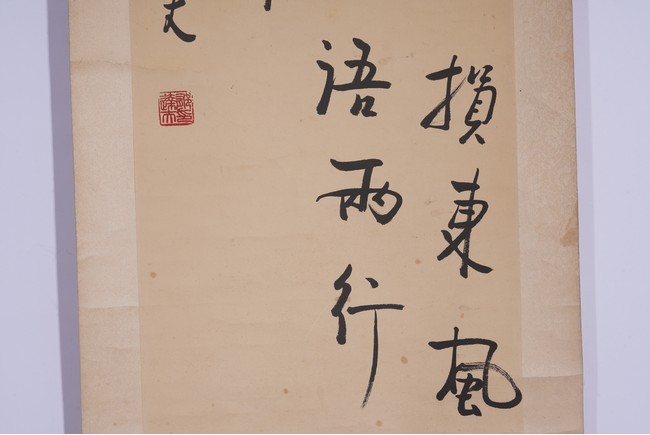 損東風
語兩行